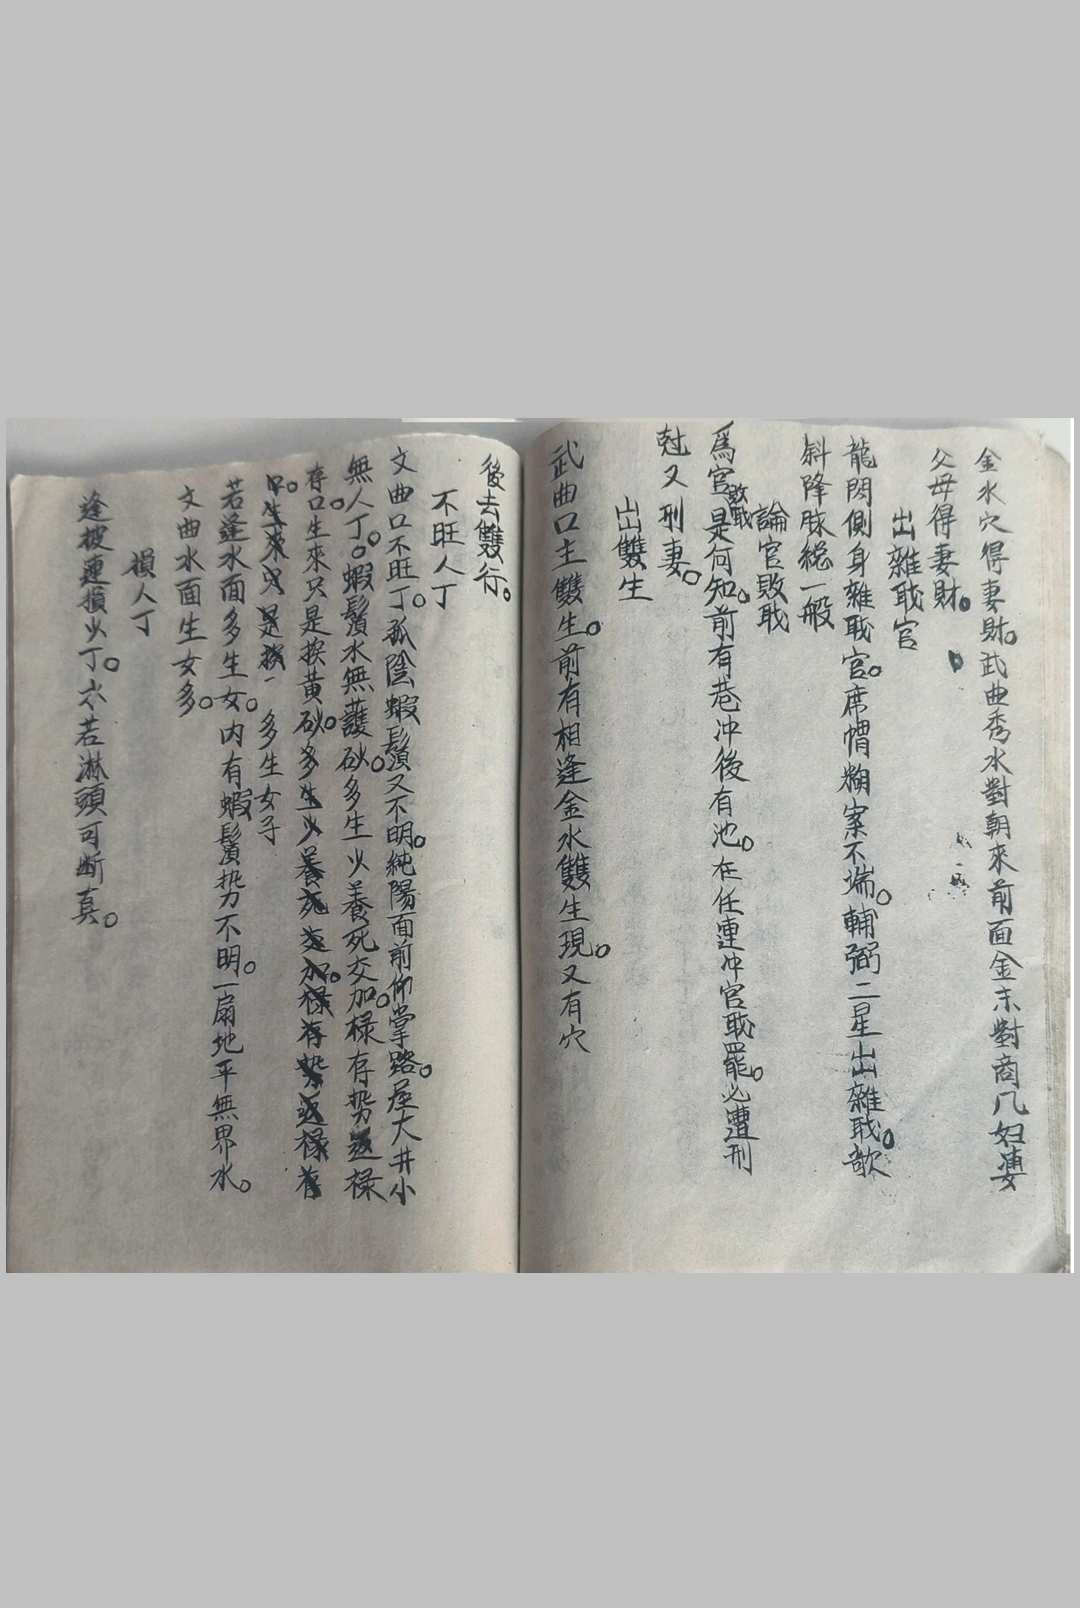 金水穴得妻財。武曲秀水對朝來前面金木對商凡妇妻
父母得妻財。
出雜耿官
龍閃側身雜耿官。席帽糊案不端。輔弼二星出雜耿。欹
斜降脉総一般
論官敗耿
爲官敗耿是何知。前有巷冲後有池。在任連冲官耿罷。必遭刑
尅又刑妻。
出雙生
武曲口主雙生。前有相逢金水雙生現。又有穴
後去雙行。
不旺人丁
文曲口不旺丁。孤陰蝦鬚又不明。純陽面前仰掌路。座大井小
無人丁。蝦鬚水無護砂。多生少養死交加。禄存势返禄
存口。生來只是挨黄砂。多生少養死交加。禄存势返禄存
口。生來只是挨
多生女子
若逢水面多生女。内有蝦鬚势不明。一扇地平無界水。
文曲水面生女多。
損人丁
逢披連損少丁。水若淋頭可断真。